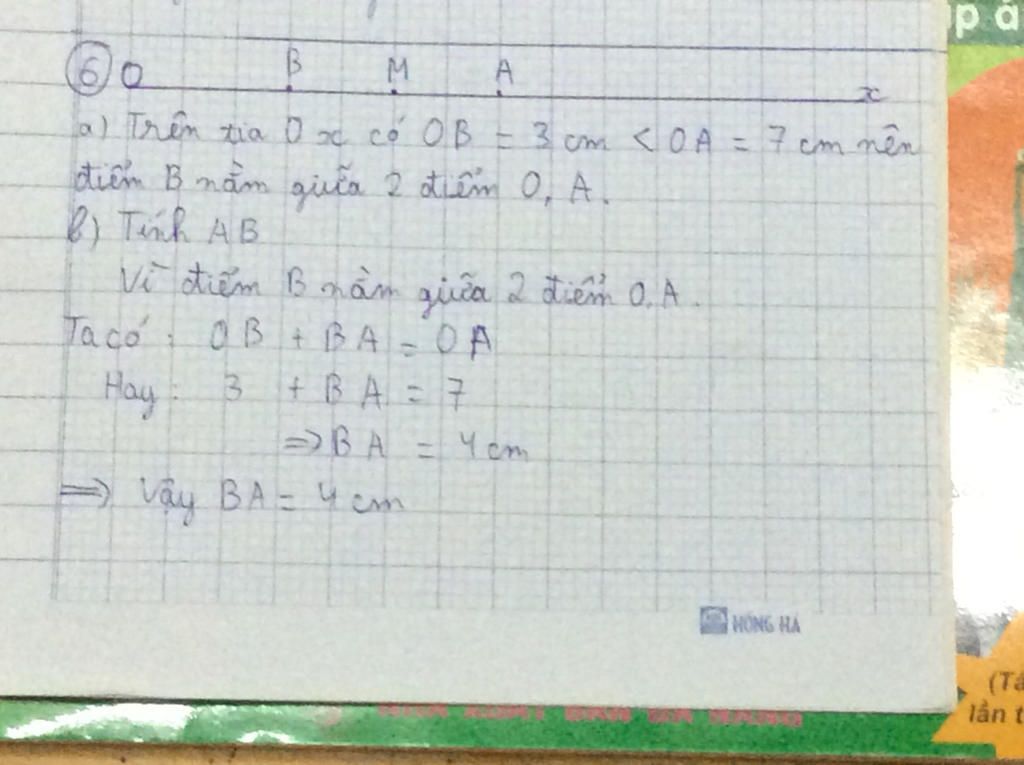 6 O B M A x
a) Trên tia Ox có OB = 3 cm < OA = 7 cm nên
điểm B nằm giữa 2 điểm O, A.
b) Tính AB
Vì điểm B nằm giữa 2 điểm O, A.
Ta có: OB + BA = OA
Hay: 3 + BA = 7
=> BA = 4 cm
=> Vậy BA = 4 cm
HỒNG HÀ
(Tá
lần t
p á